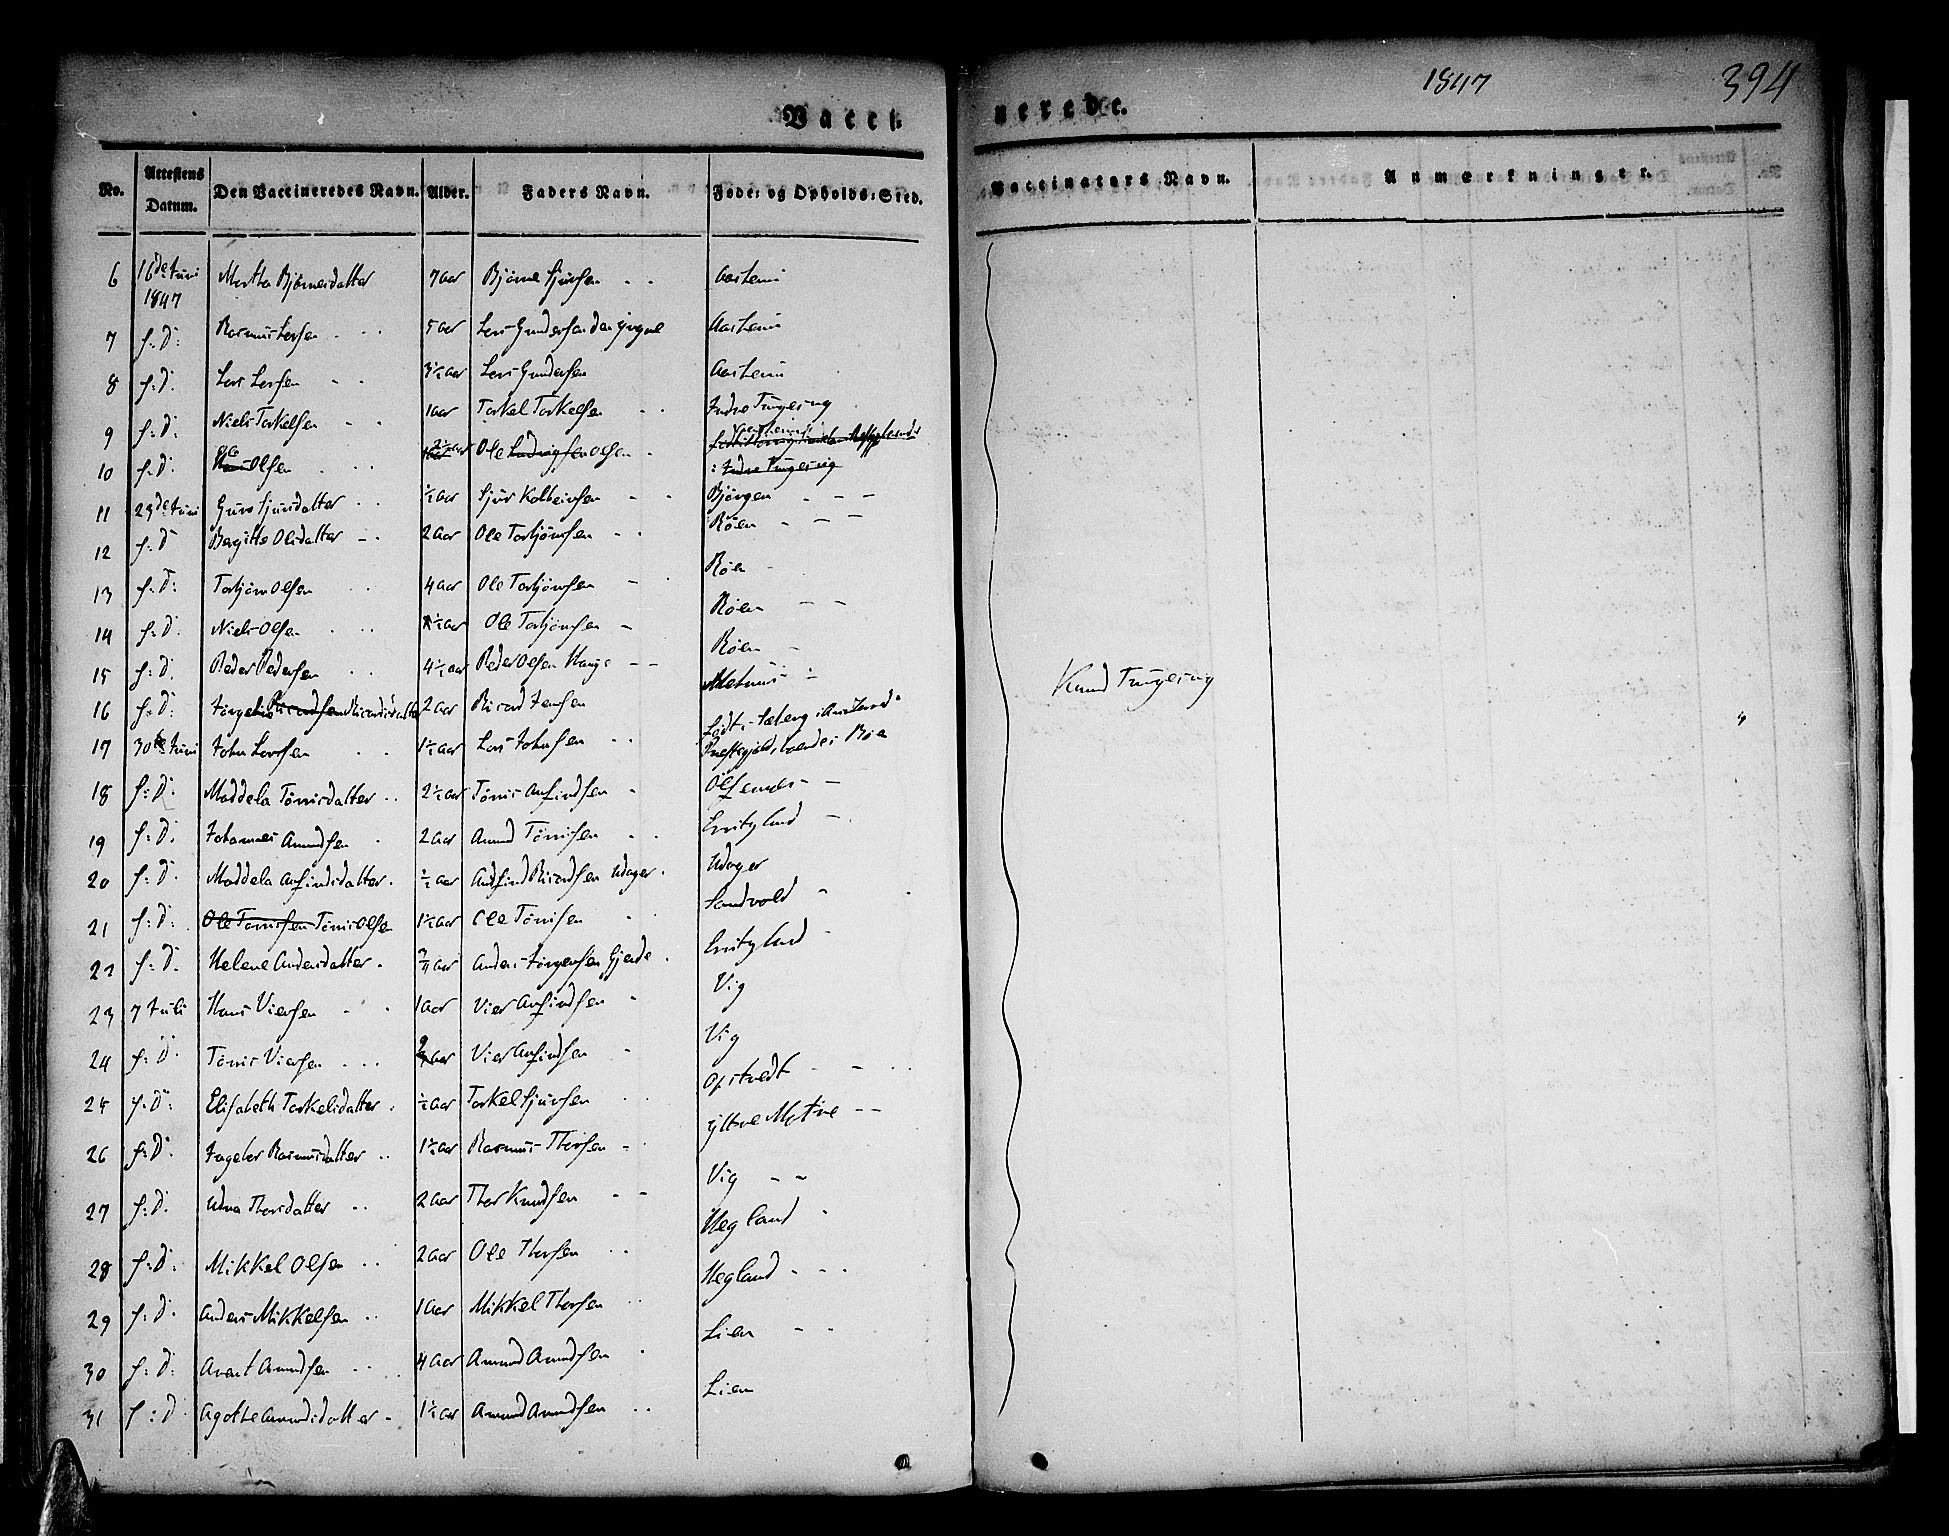 1847
394
Vacci
nerede.
No. Attestens Datum. Den Vaccineredes Navn. Alder. Faders Navn. Føde- og Opholds-Sted. Vaccinateurs Navn. Anmærkninger.
6 16de Juni 1847 Martha Bjørnesdatter 7 aar Bjørne Sjursen
7 f: D: Rasmus Larsen 5 aar Lars Gundersen den yngre
8 f: D: Lars Larsen 3½ aar Lars Gundersen
9 f: D: Niels Torkelsen 1 aar Torkel Torkelsen Indre Tungesvig
10 f: D: Ole Olsen 2½ aar Ole Ludvigsen Olsen : Indre Tungesvig
11 23de Juni Guro Sjursdatter ½ aar Sjur Kolbeinsen Bjørgen
12 f: D: Bergitte Olsdatter 2 aar Ole Torbjørnsen Røen
13 f: D: Torbjørn Olsen 4 aar Ole Torbjørnsen Røen
14 f: D: Niels Olsen 1½ aar Ole Torbjørnsen Røen
15 f: D: Peder Pedersen 4½ aar Peder Olsen Hauge Røen
16 f: D: Ricardsdatter 2 aar Ricard Jensen
17 30te Juni John Larsen 1½ aar Lars Johnsen
18 f: D: Maddela Tönnisdatter 2½ aar Tönnis Anfindsen Ølfernes
19 f: D: Johannes Amundsen 2 aar Amund Tönnisen
20 f: D: Maddela Anfindsdatter ½ aar Andfind Ricardsen Udager Udager
21 f: D: Ole Tönnisen Tönnis Olsen 1½ aar Ole Tönnisen Sandvold
22 f: D: Helene Andersdatter ¾ aar Anders Jørgensen Gjerde
23 7 Juli Hans Viersen 1 aar Vier Anfindsen Vig
24 f: D: Tönnis Viersen aar Vier Anfindsen Vig
25 f: D: Elisabeth Torkelsdatter ½ aar Torkel Sjursen Opstvedt
26 f: D: Ingeber Rasmusdatter 1½ aar Rasmus Thorsen
27 f: D: Udna Thorsdatter 2 aar Thor Knudsen Vig
28 f: D: Mikkel Olsen 2 aar Ole Thorsen Hegland
29 f: D: Anders Mikkelsen 1 aar Mikkel Thorsen Hegland
30 f: D: Amundsen 4 aar Amund Amundsen Lien
31 f: D: Agathe Amundsdatter 1½ aar Amund Amundsen Lien
Knud Tungesvig